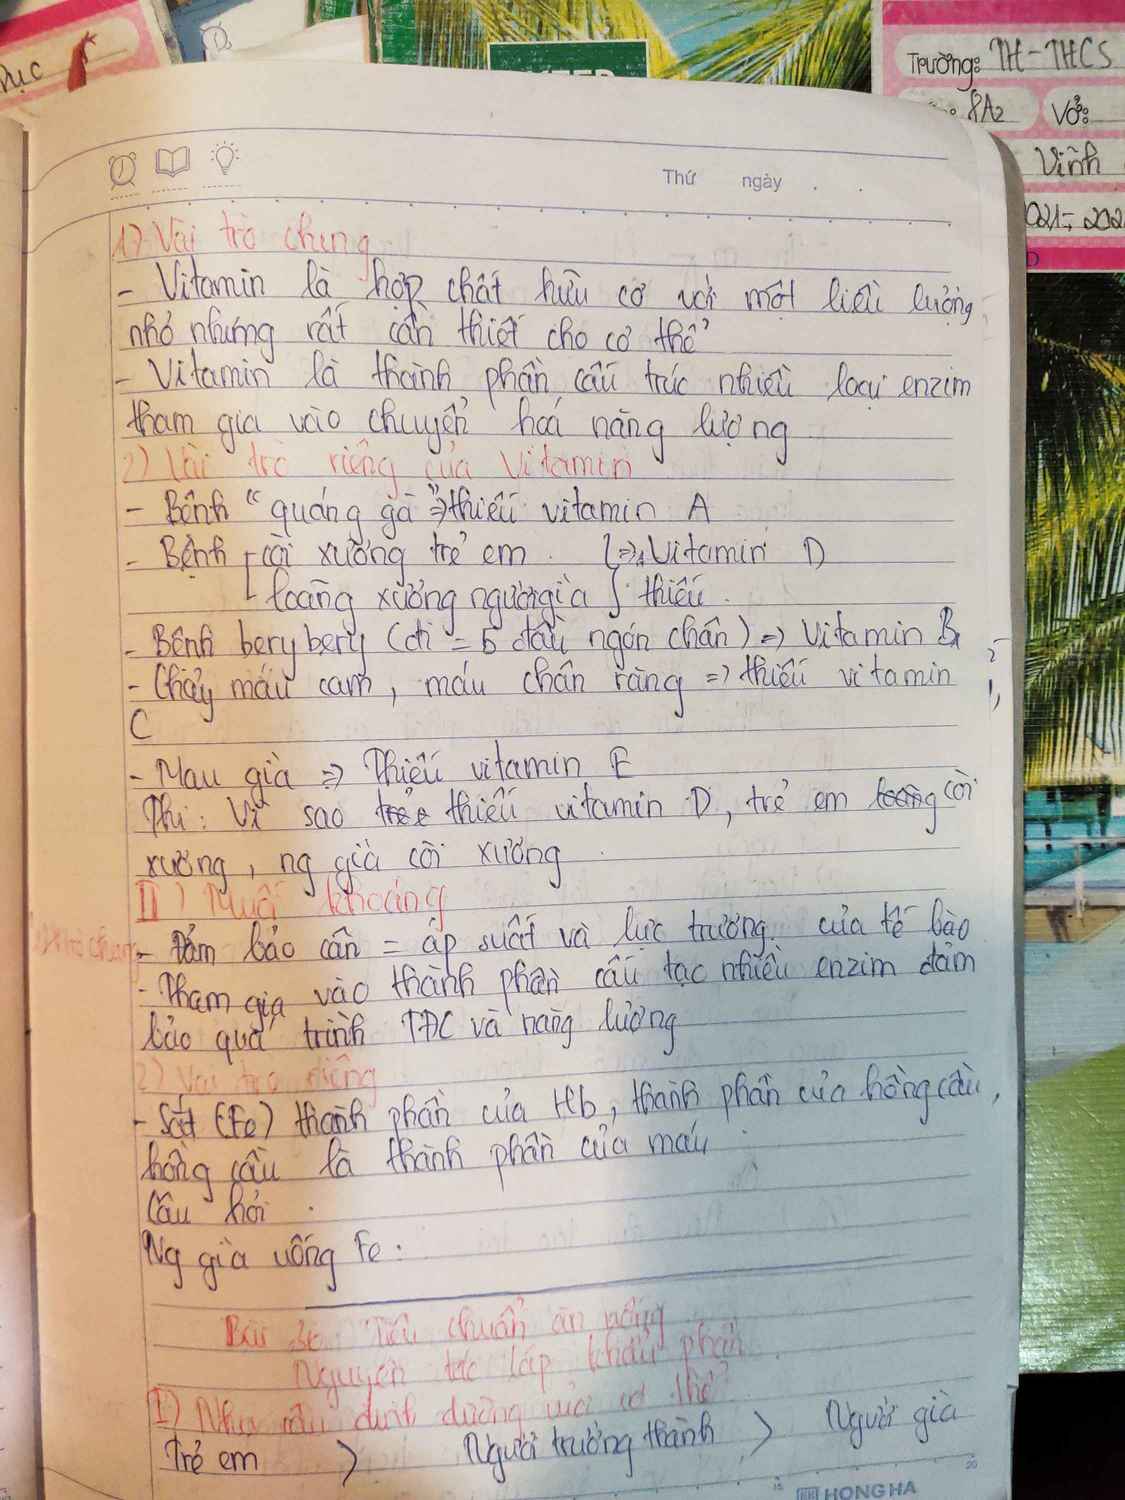 ỤC
Trường: TH-THCS
8A2 Vở:
Vinh
021-202
Thứ ngày . .
1) Vai trò chung
- Vitamin là hợp chất hữu cơ với một liều lượng
nhỏ nhưng rất cần thiết cho cơ thể
- Vitamin là thành phần cấu trúc nhiều loại enzim
tham gia vào chuyển hoá năng lượng
2) Vai trò riêng của vitamin
- Bệnh "quáng gà" => thiếu vitamin A
- Bệnh còi xương trẻ em } => Vitamin D
loãng xương người già } thiếu.
- Bệnh bery bery (đi = 5 đầu ngón chân) => Vitamin B1
- Chảy máu cam, máu chân răng => thiếu vitamin
C
- Mau già => Thiếu vitamin E
Thi: Vì sao trẻ e thiếu vitamin D, trẻ em loãng còi
xương, ng già còi xương
II) Muối khoáng
1) Vtrò chung
- Đảm bảo cân = áp suất và lực trương của tế bào
- Tham gia vào thành phần cấu tạc nhiều enzim đảm
bảo quá trình TĐC và năng lượng
2) Vai trò riêng
- Sắt (Fe) thành phần của Hb, thành phần của hồng cầu,
hồng cầu là thành phần của máu.
Câu hỏi.
Ng già uống Fe:
Bài 36 Tiêu chuẩn ăn uống
Nguyên tắc lập khẩu phần
I) Nhu cầu dinh dưỡng của cơ thể
Trẻ em > Người trưởng thành > Người già
HONG HA